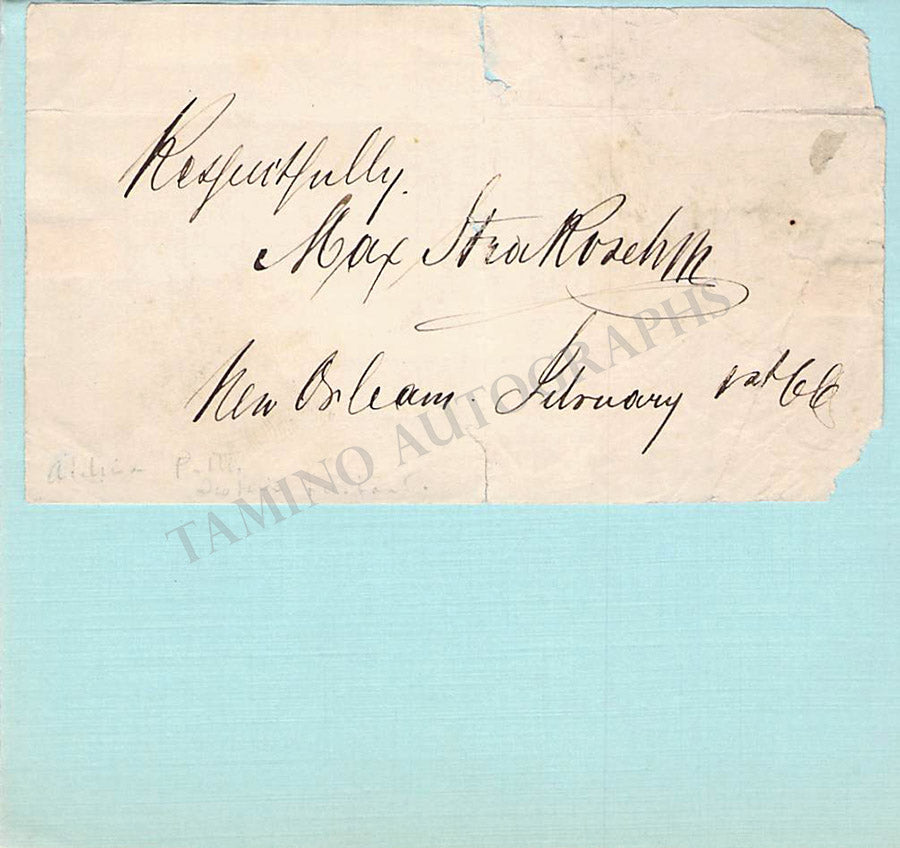 Respectfully.
Max Strakosch
New Orleans. February 1st 66
TAMINO AUTOGRAPHS